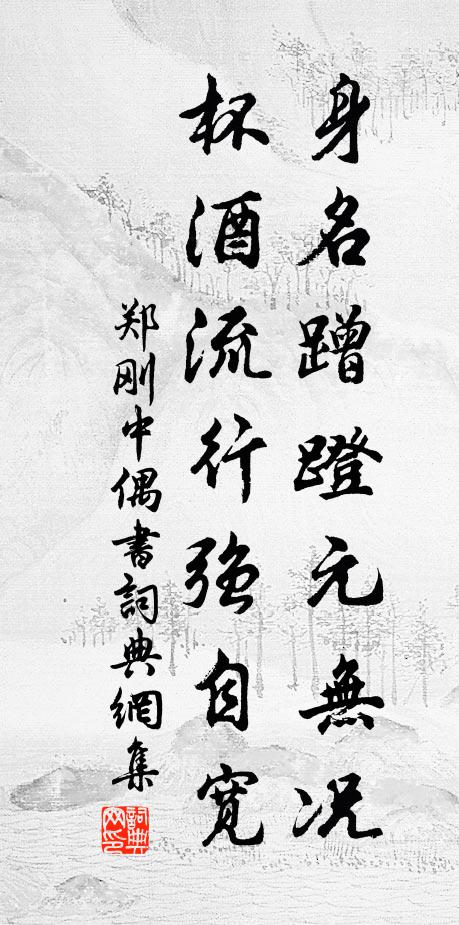 身名蹭蹬元無况
杯酒流行強自寬
郑刚中偶書詞典網集
詞典網印